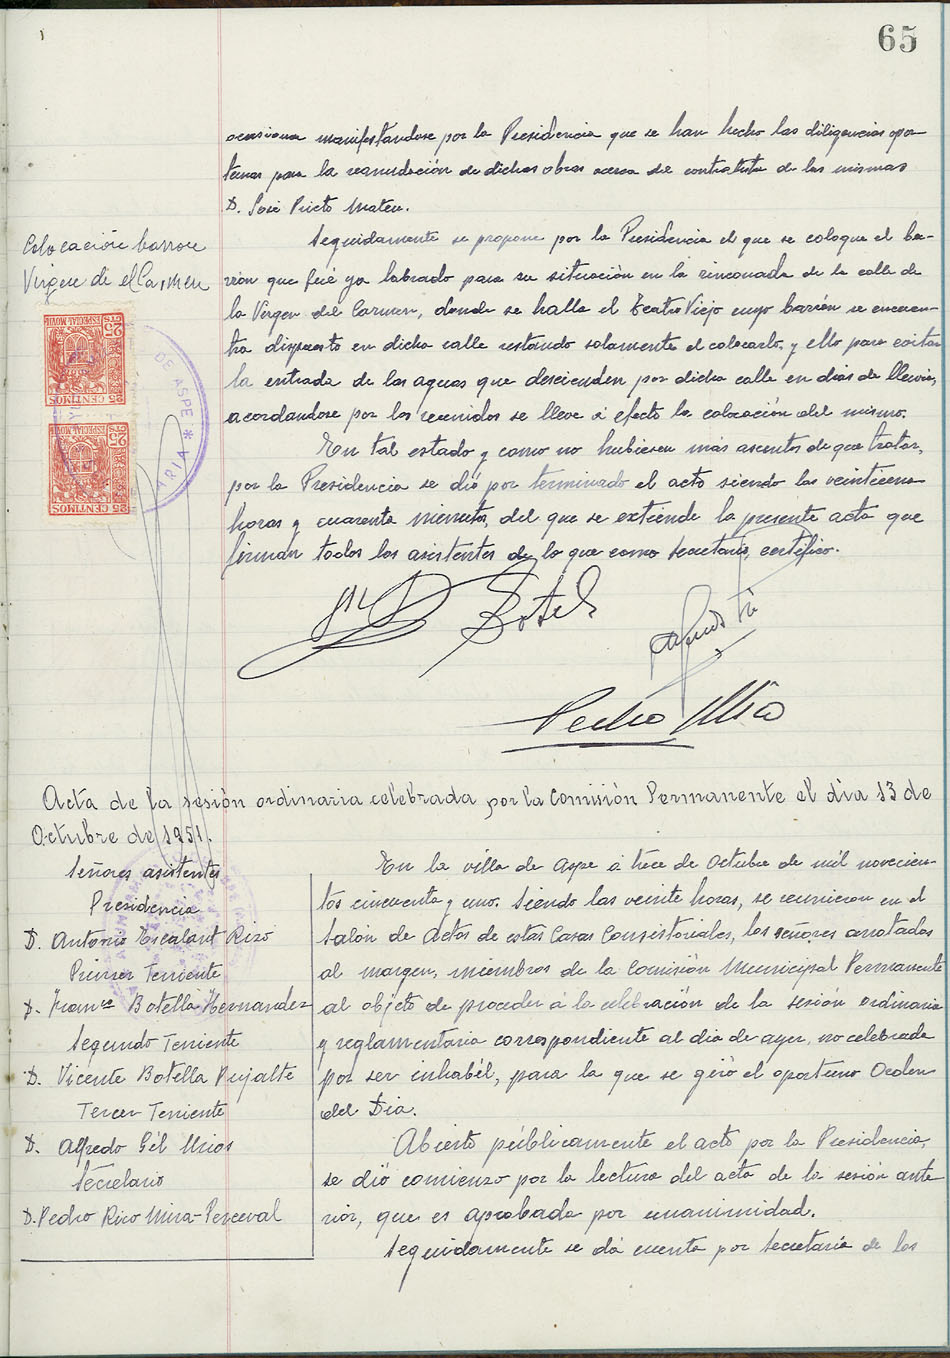 65
ocasiona manifestandose por la Presidencia que se han hecho las diligencias opor-
tunas para la reanudación de dichas obras acerca del contratista de las mismas
D. José Prieto Mateu.
Colocación barron
Virgen de el Carmen
Seguidamente se propone por la Presidencia el que se coloque el ba-
rrón que fué ya labrado para su situación en la rinconada de la calle de
la Virgen del Carmen, donde se halla el Teatro Viejo cuyo barrón se encuen-
tra dispuesto en dicha calle restando solamente el colocarlo, y ello para evitar
la entrada de las aguas que descienden por dicha calle en dias de lluvia,
acordandose por los reunidos se lleve a efecto la colocación del mismo.
En tal estado y como no hubiesen más asuntos de que tratar,
por la Presidencia se dió por terminado el acto siendo las veintiuna
horas y cuarenta minutos, del que se extiende la presente acta que
firman todos los asistentes de lo que como Secretario, certifico.
ESPECIAL MOVIL
25 CTS
25 CENTIMOS
ESPECIAL MOVIL
25 CTS
25 CENTIMOS
DE ASPE *
Botella
Alfredo
Pedro Mira
Acta de la sesión ordinaria celebrada por la Comisión Permanente el dia 13 de
Octubre de 1951.
Señores asistentes
Presidencia
D. Antonio Escalant Rizo
Primer Teniente
D. Franco Botella Hernandez
Segundo Teniente
D. Vicente Botella Pujalte
Tercer Teniente
D. Alfredo Gil Mios
Secretario
D. Pedro Rizo Mira-Perceval
En la villa de Aspe á trece de Octubre de mil novecien-
tos cincuenta y uno. Siendo las veinte horas, se reunieron en el
Salón de Actos de estas Casas Consistoriales, los señores anotados
al margen, miembros de la Comisión Municipal Permanente
al objeto de proceder á la celebración de la sesión ordinaria
y reglamentaria correspondiente al dia de ayer, no celebrada
por ser inhabil, para la que se giró el oportuno Orden
del Dia.
Abierto públicamente el acto por la Presidencia,
se dió comienzo por la lectura del acta de la sesión ante-
rior, que es aprobada por unanimidad.
Seguidamente se dá cuenta por Secretaría de las